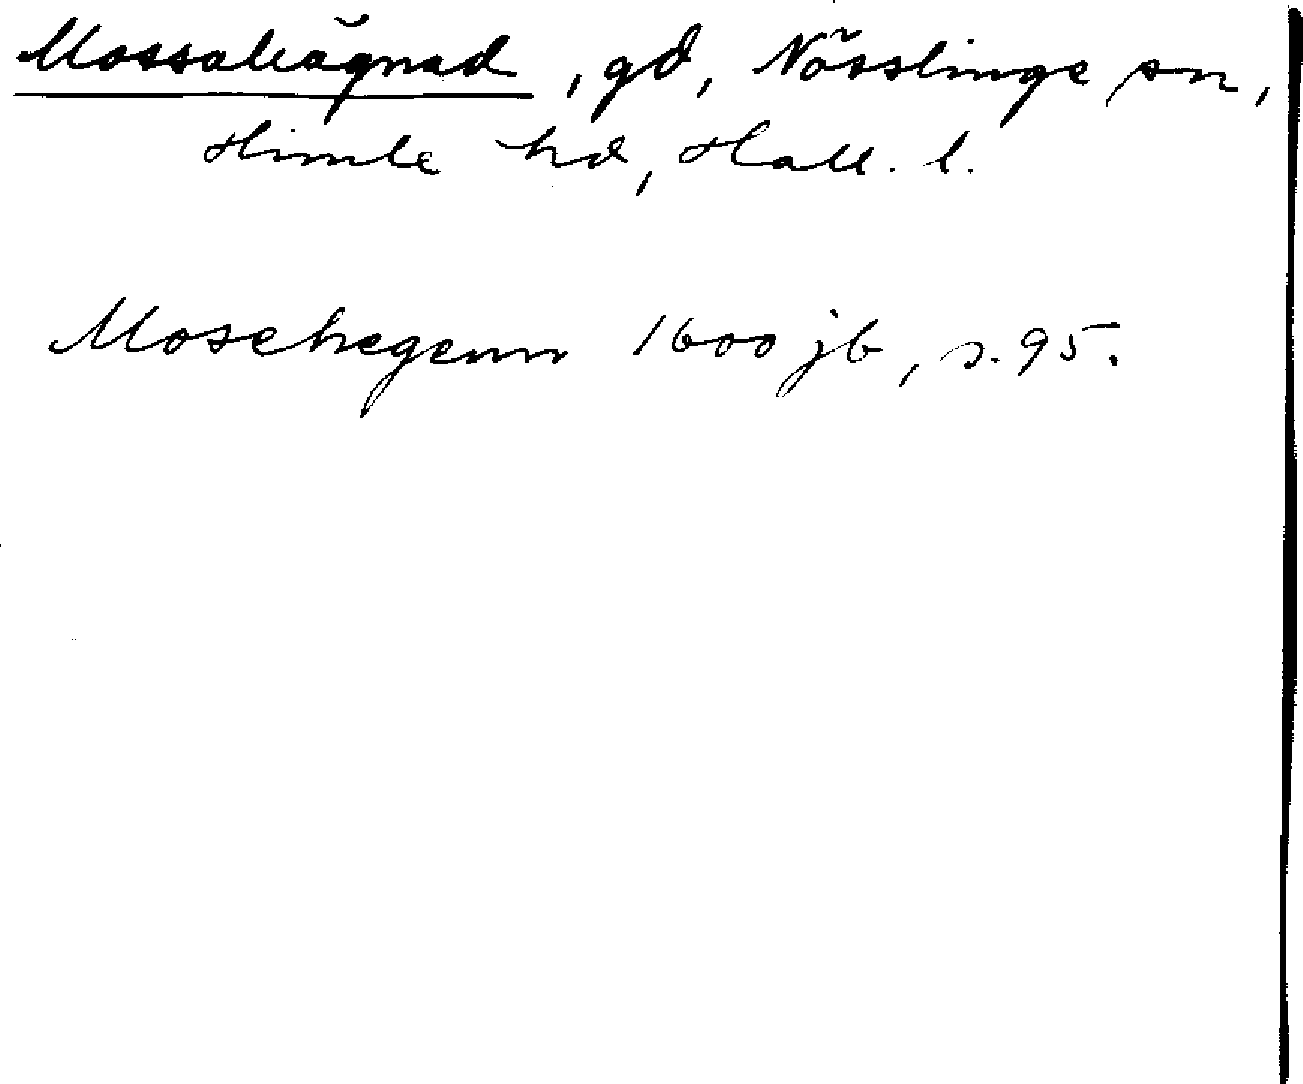 Mossahägnad, gd, Nösslinge sn,
Himle hd, Hall. l.
Mosehegenn 1600 jb, s. 95.